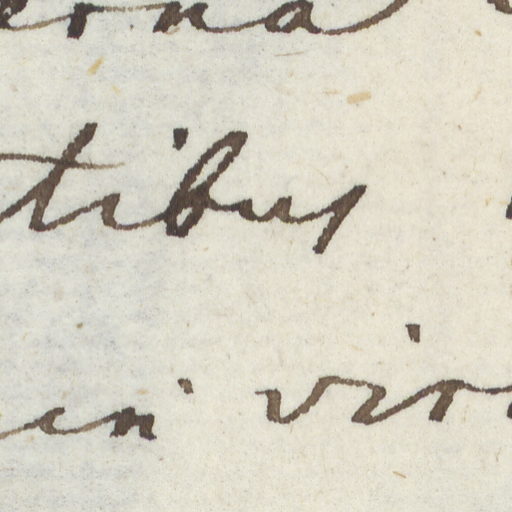 erna
tibus
in vir